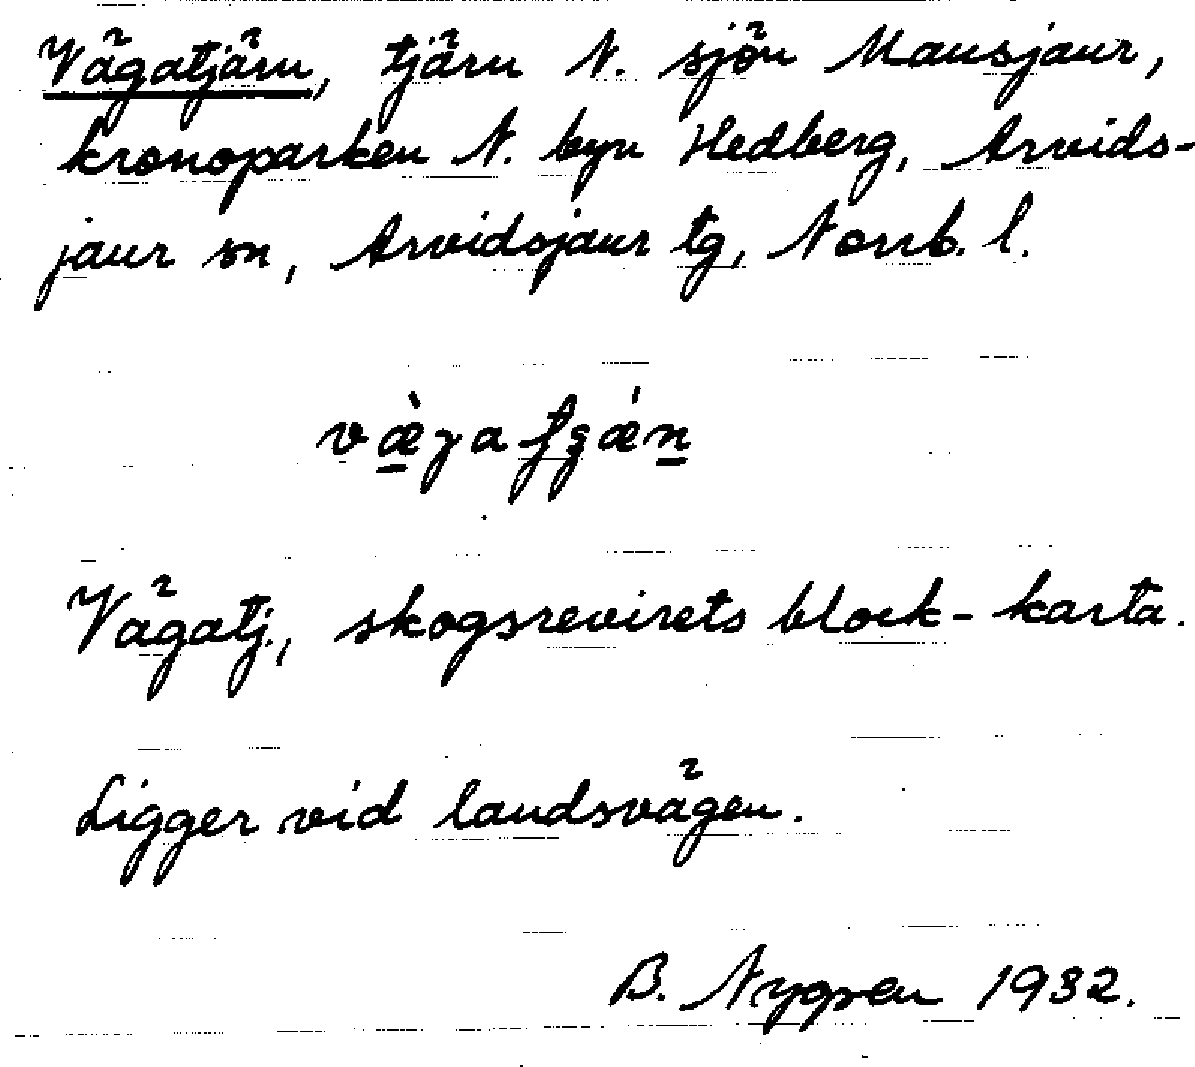 Vägatjärn, tjärn N. sjön Mausjaur,
kronoparken N. byn Hedberg, Arvids-
jaur sn, Arvidsjaur tg, Norrb. l.
Vägatj., skogsrevirets block-karta.
Ligger vid landsvägen.
B. Nygren 1932.